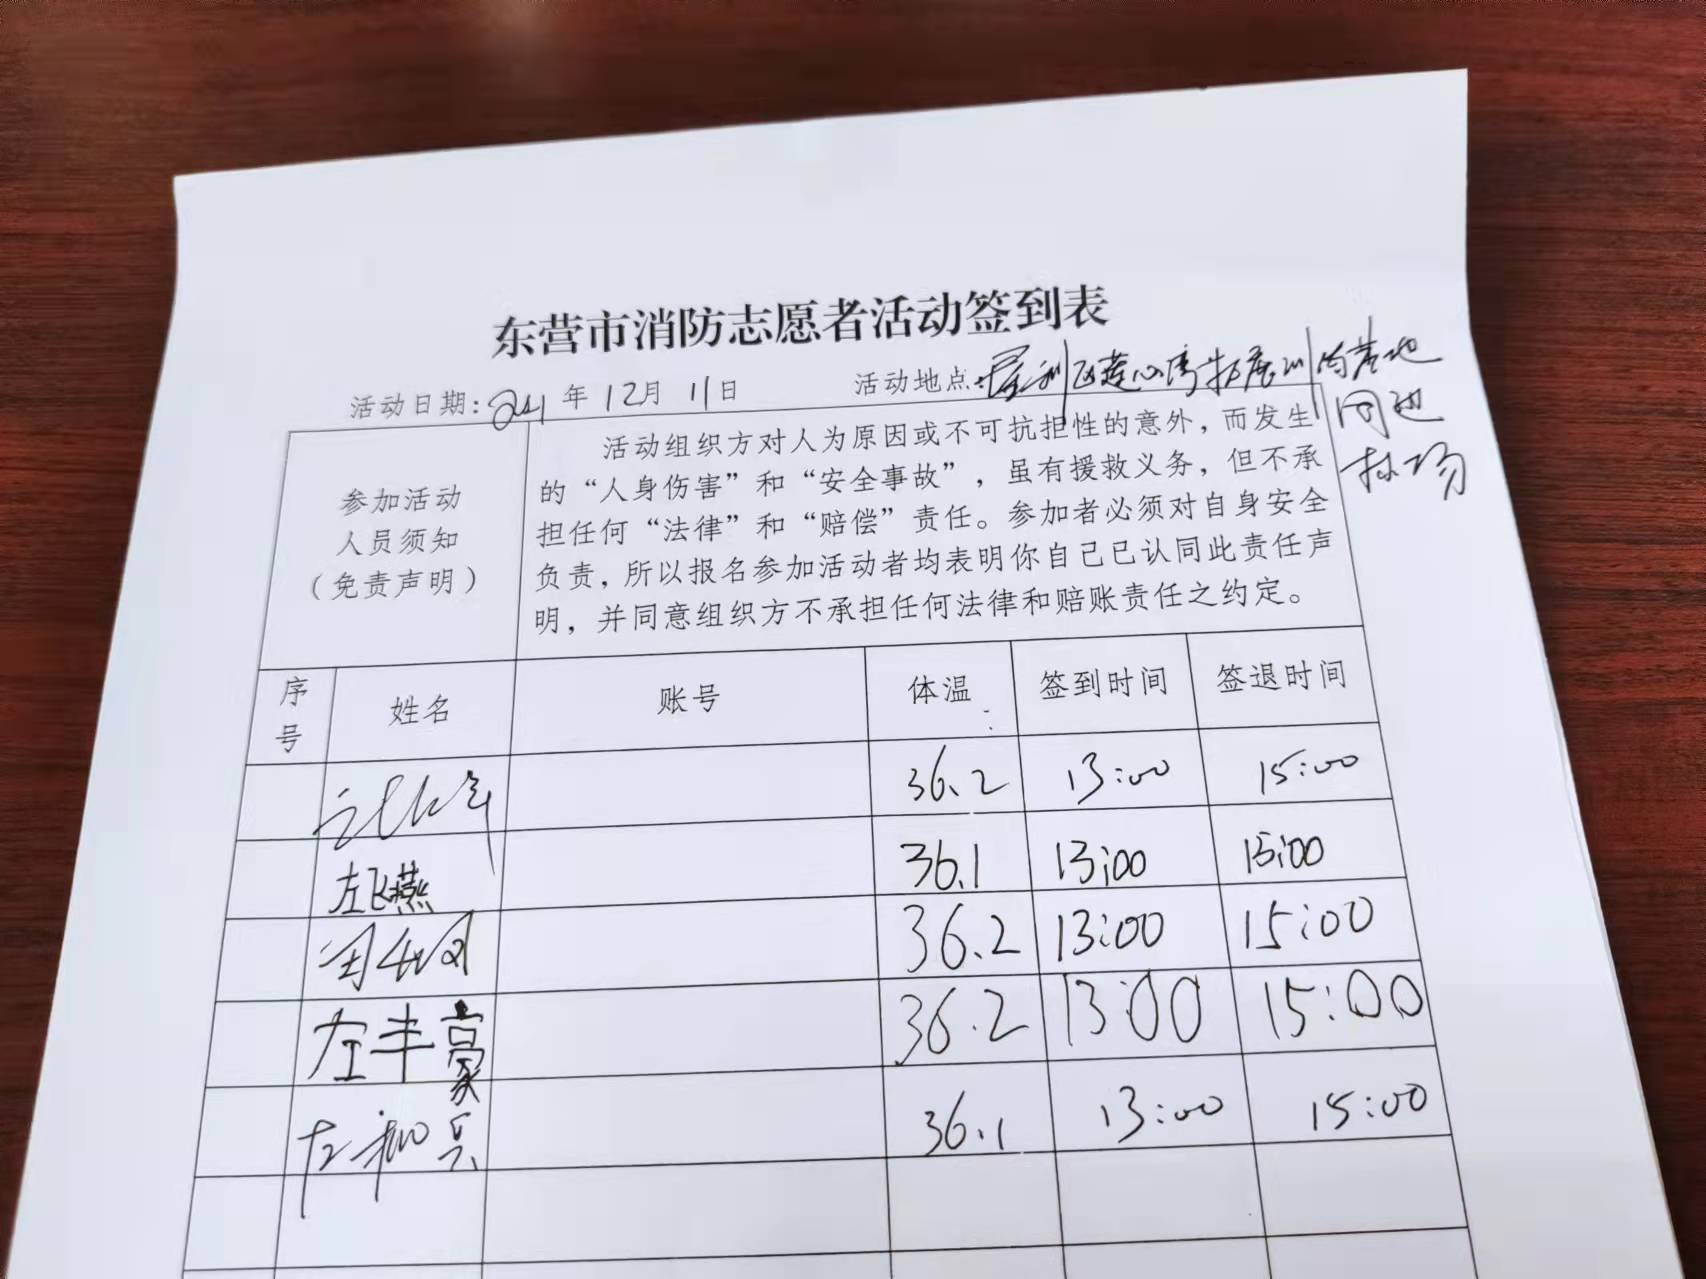 东营市消防志愿者活动签到表
活动日期:2021年12月11日 活动地点:垦利区莲心湾拓展训
周边
林场
参加活动
人员须知
(免责声明)
活动组织方对人为原因或不可抗担性的意外，而发生
的“人身伤害”和“安全事故”，虽有援救义务，但不承
担任何“法律”和“赔偿”责任。参加者必须对自身安全
负责，所以报名参加活动者均表明你自己已认同此责任声
明，并同意组织方不承担任何法律和赔账责任之约定。
序号 姓名 账号 体温 签到时间 签退时间
36.2 13:00 15:00
左飞燕 36.1 13:00 15:00
36.2 13:00 15:00
左丰豪 36.2 13:00 15:00
左和兵 36.1 13:00 15:00